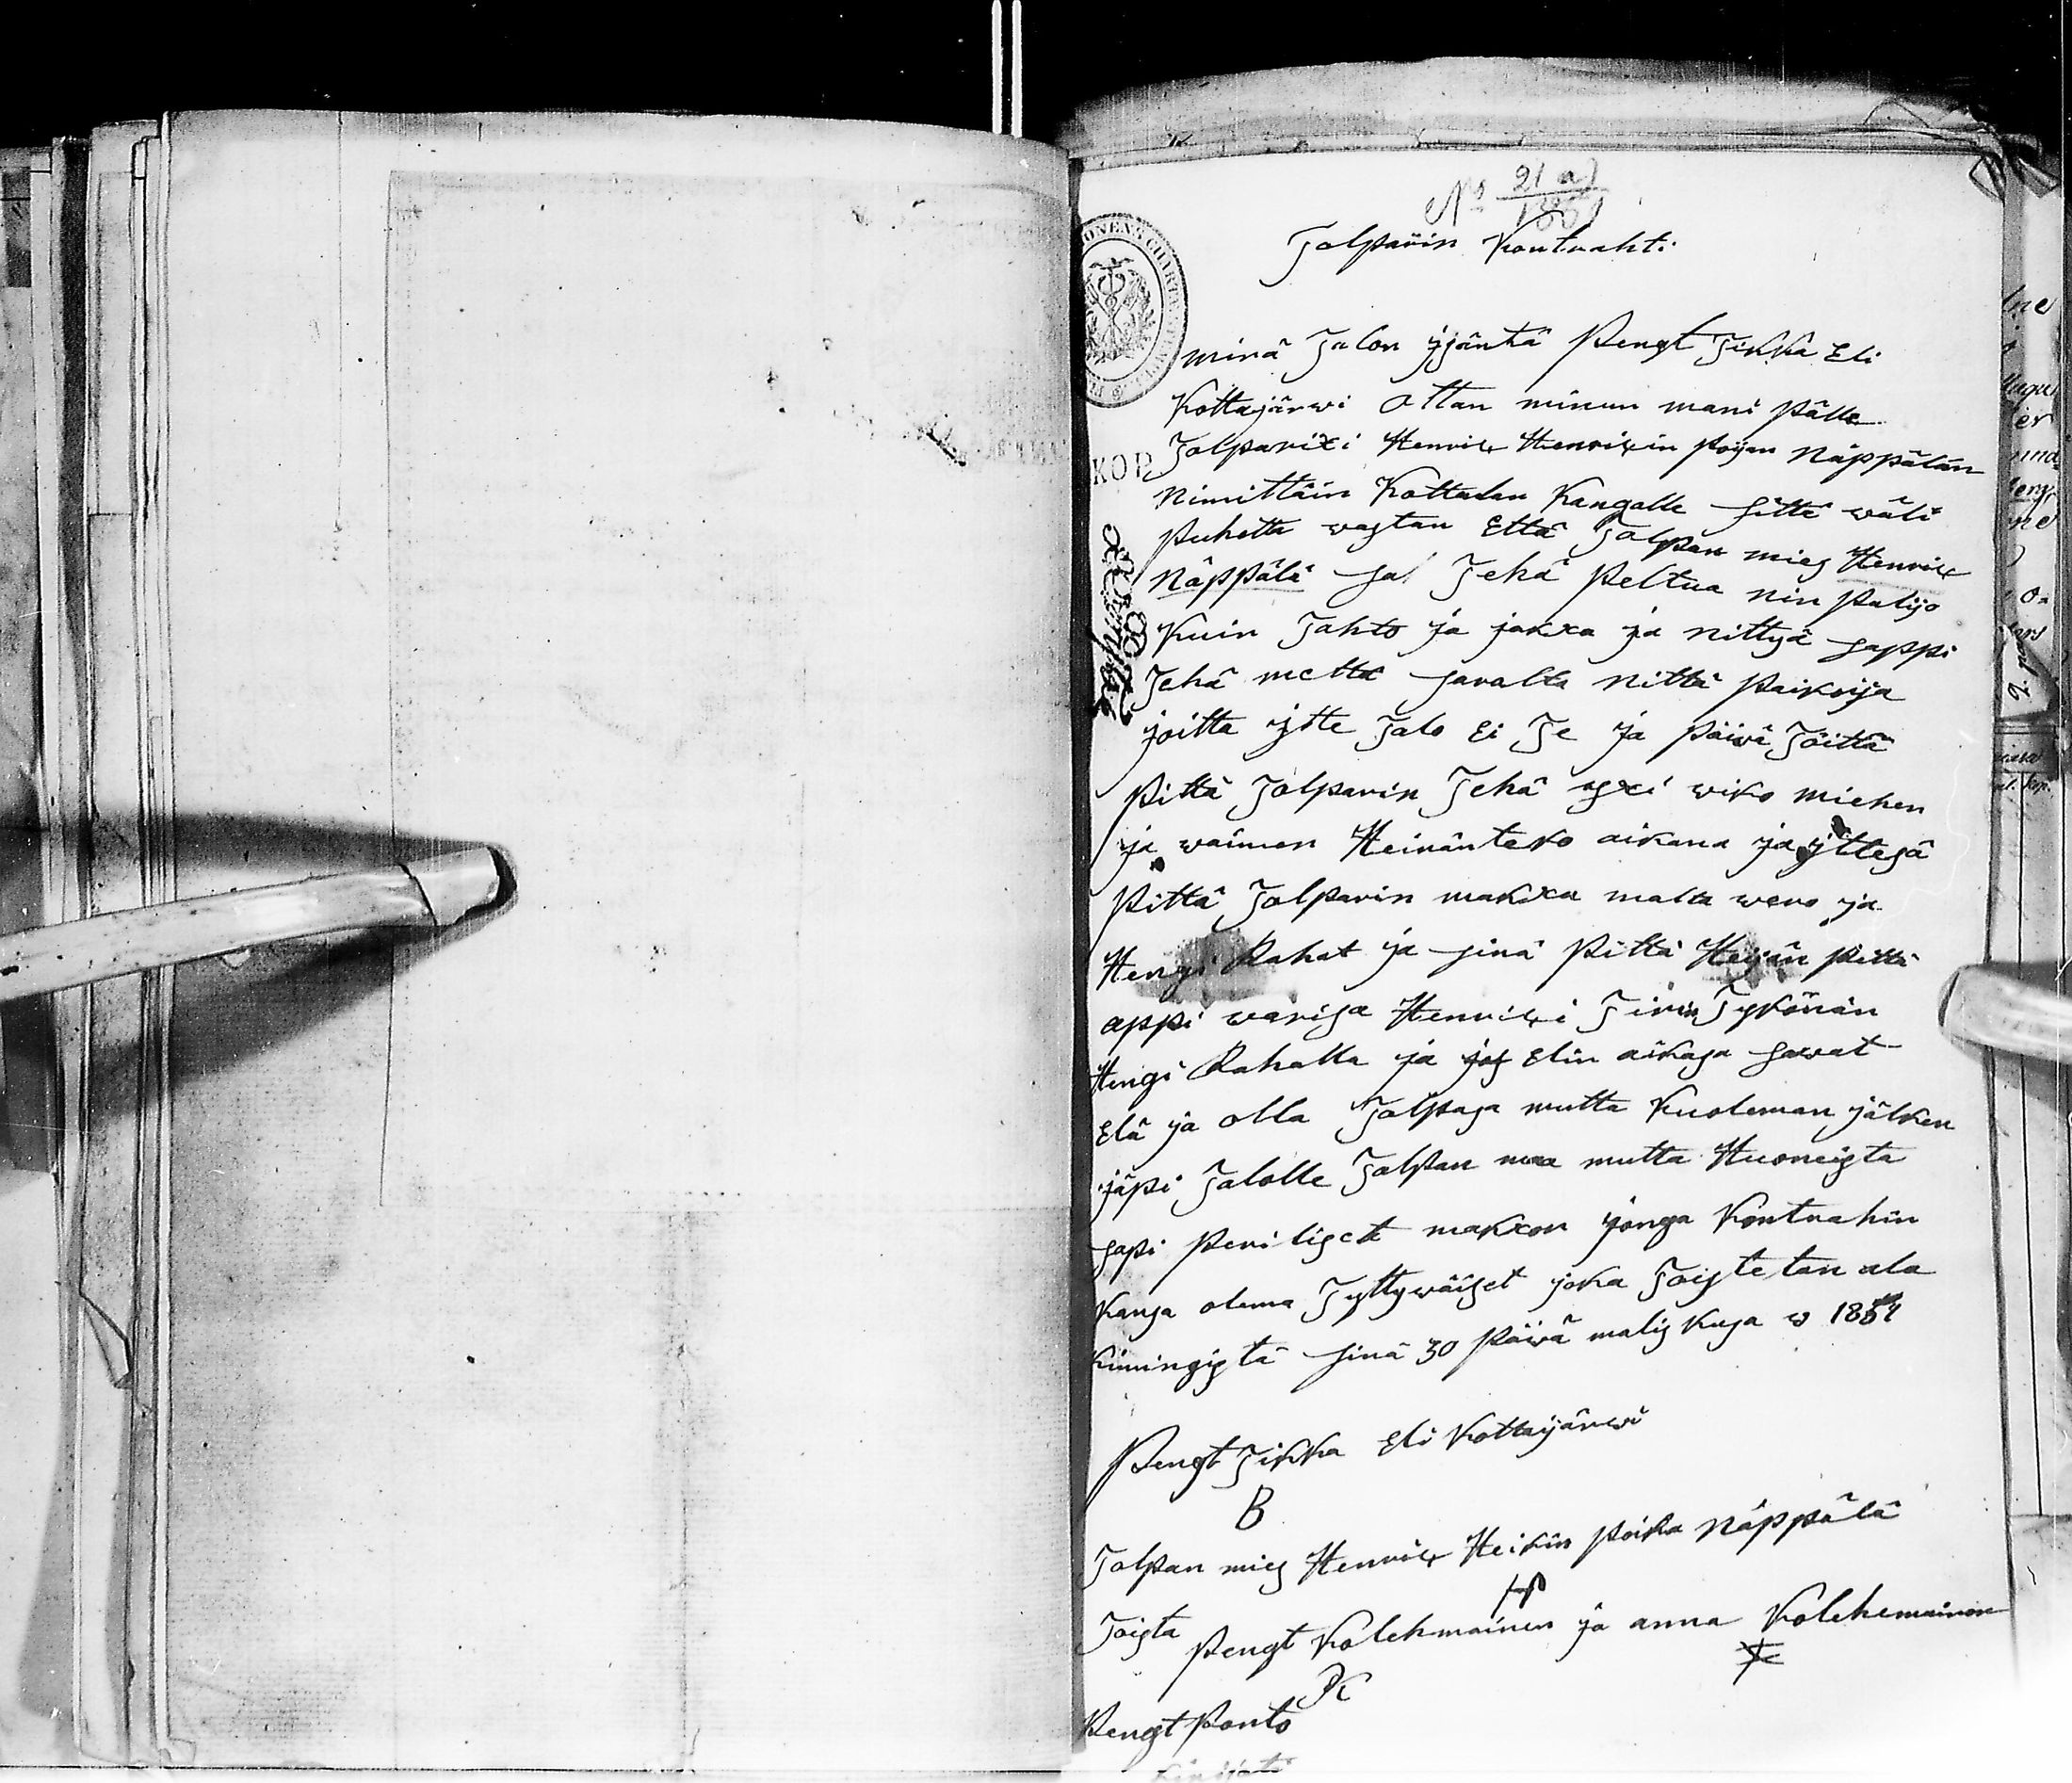 No 21 a)
Tolparin Kontrahti
minä Talon yjäntä Pengt Tikka Eli
Kottajärwi Ottan minun mani Pälle
KOP. Tolparixi Henrix Henrixin Poijan Näppälän
Nimittäin Kottalan Kangalle sittä wäli
Puhetta wastan Että Tolpan mies Henrix
Näppälä sa Tehä Peltua nin Palijo
Kuin Tahto ja jaxa ja nittyä sappi
Tehä mettä saralta Nittä Paikoija
joitta itte Talo Ei Te ja Päivä Töittä
Pittä Tolparin Tehä yxi wiko miehen
ja waimon Heinänteko aikana ja yttesä
Pittä Tolparin makxa malta wero ja
Hengi Rahat ja sinä Pittä Heijän Pittä
appi warisa Henrixi Tykönän
Hengi Rahalla ja jos Elin aikasa sawat
Elä ja olla Tolpasa mutta Kuoleman jälken
jäpi Talolle Tolpan maa mutta Huoneista
sapi Perilliset makxon jonga Kontrahin
Kansa olema Tyttywäiset joka Toistetan ala
Kimingistä sinä 30 Päiwä malis kusa w 1854
Pengt Tikka Eli Kottajärwi
B
Tolpan mies Henrix Heikin Poika Näppälä
Toista Pengt Kolehmainen ja anna Kolehemainen
K
Pengt Ponto